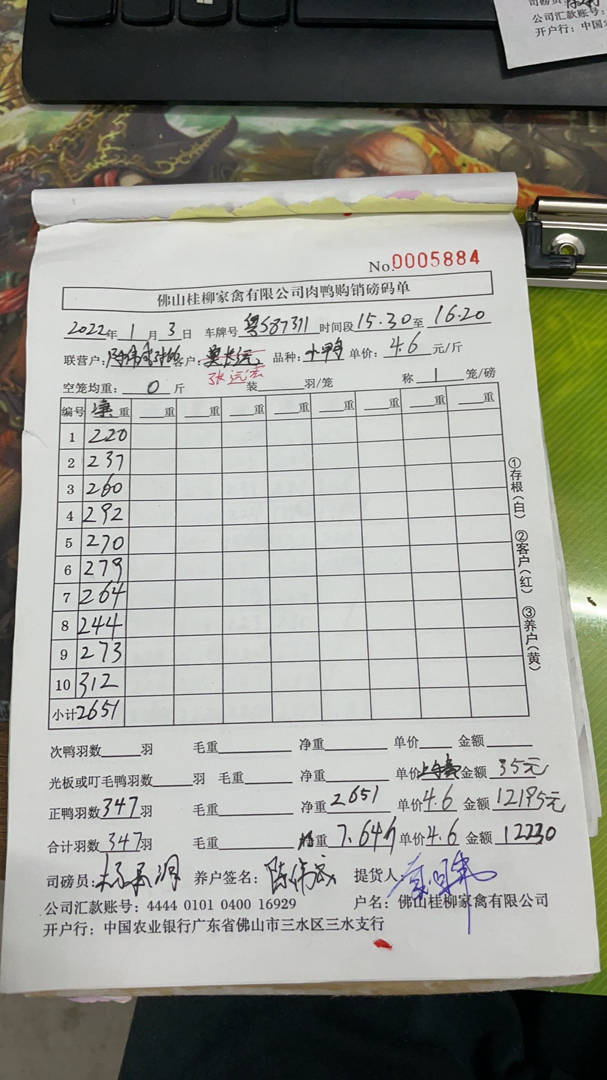 公司汇款账号:
开户行: 中国
No.0005884
佛山桂柳家禽有限公司肉鸭购销磅码单
2022年 1 月 3 日 车牌号 粤S87311 时间段 15.30 至 16.20
联营户: 客户: 品种: 单价: 4.6 元/斤
张远法
空笼均重: 0 斤 装 羽/笼 称 1 笼/磅
编号 重 重 重 重 重 重 重 重 重
1 220
2 237
3 260
4 292
5 270
6 279
7 264
8 244
9 273
10 312
小计 2651
①存根(白) ②客户(红) ③养户(黄)
次鸭羽数 羽 毛重 净重 单价 金额
光板或叮毛鸭羽数 羽 毛重 单价 金额 35元
正鸭羽数 347 羽 毛重 净重 2651 单价 4.6 金额 12195元
合计羽数 347 羽 毛重 重 7.64 单价 4.6 金额 12230
司磅员: 养户签名: 陈伟武 提货人:
公司汇款账号: 4444 0101 0400 16929 户名: 佛山桂柳家禽有限公司
开户行: 中国农业银行广东省佛山市三水区三水支行